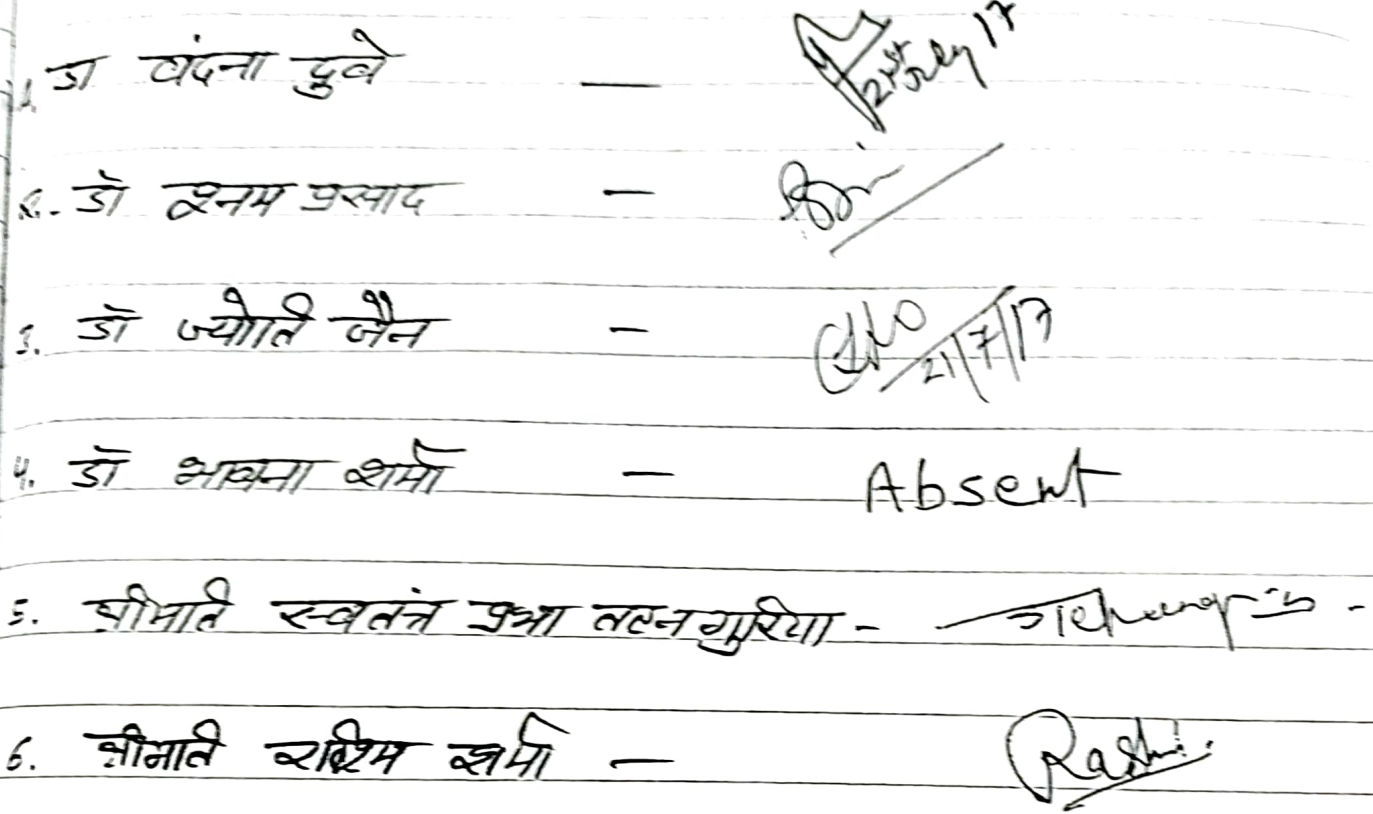 1. डा वंदना दुबे — 21st July 17
2. डॉ प्रसाद —
3. डॉ ज्योति जैन — 21/7/17
4. डॉ भावना शर्मा — Absent
5. श्रीमति स्वतंत्र प्रभा -
6. श्रीमति रश्मि शर्मा — Rashmi